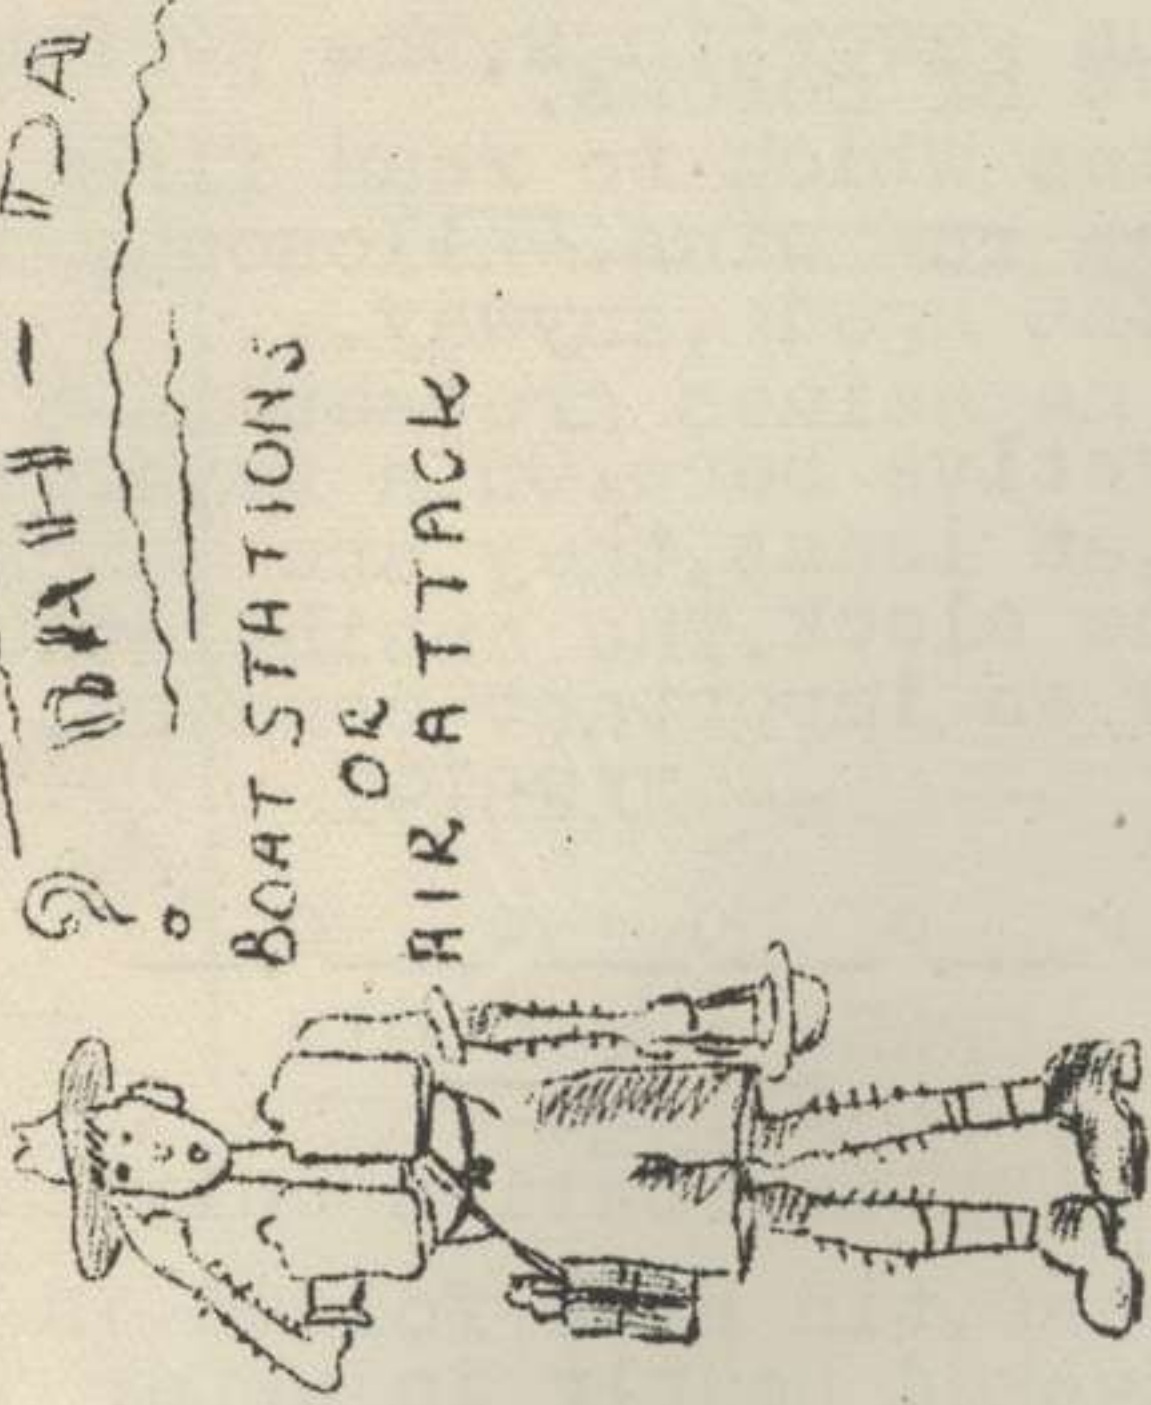 ? BAH - DA
BOAT STATIONS
OR
AIR ATTACK